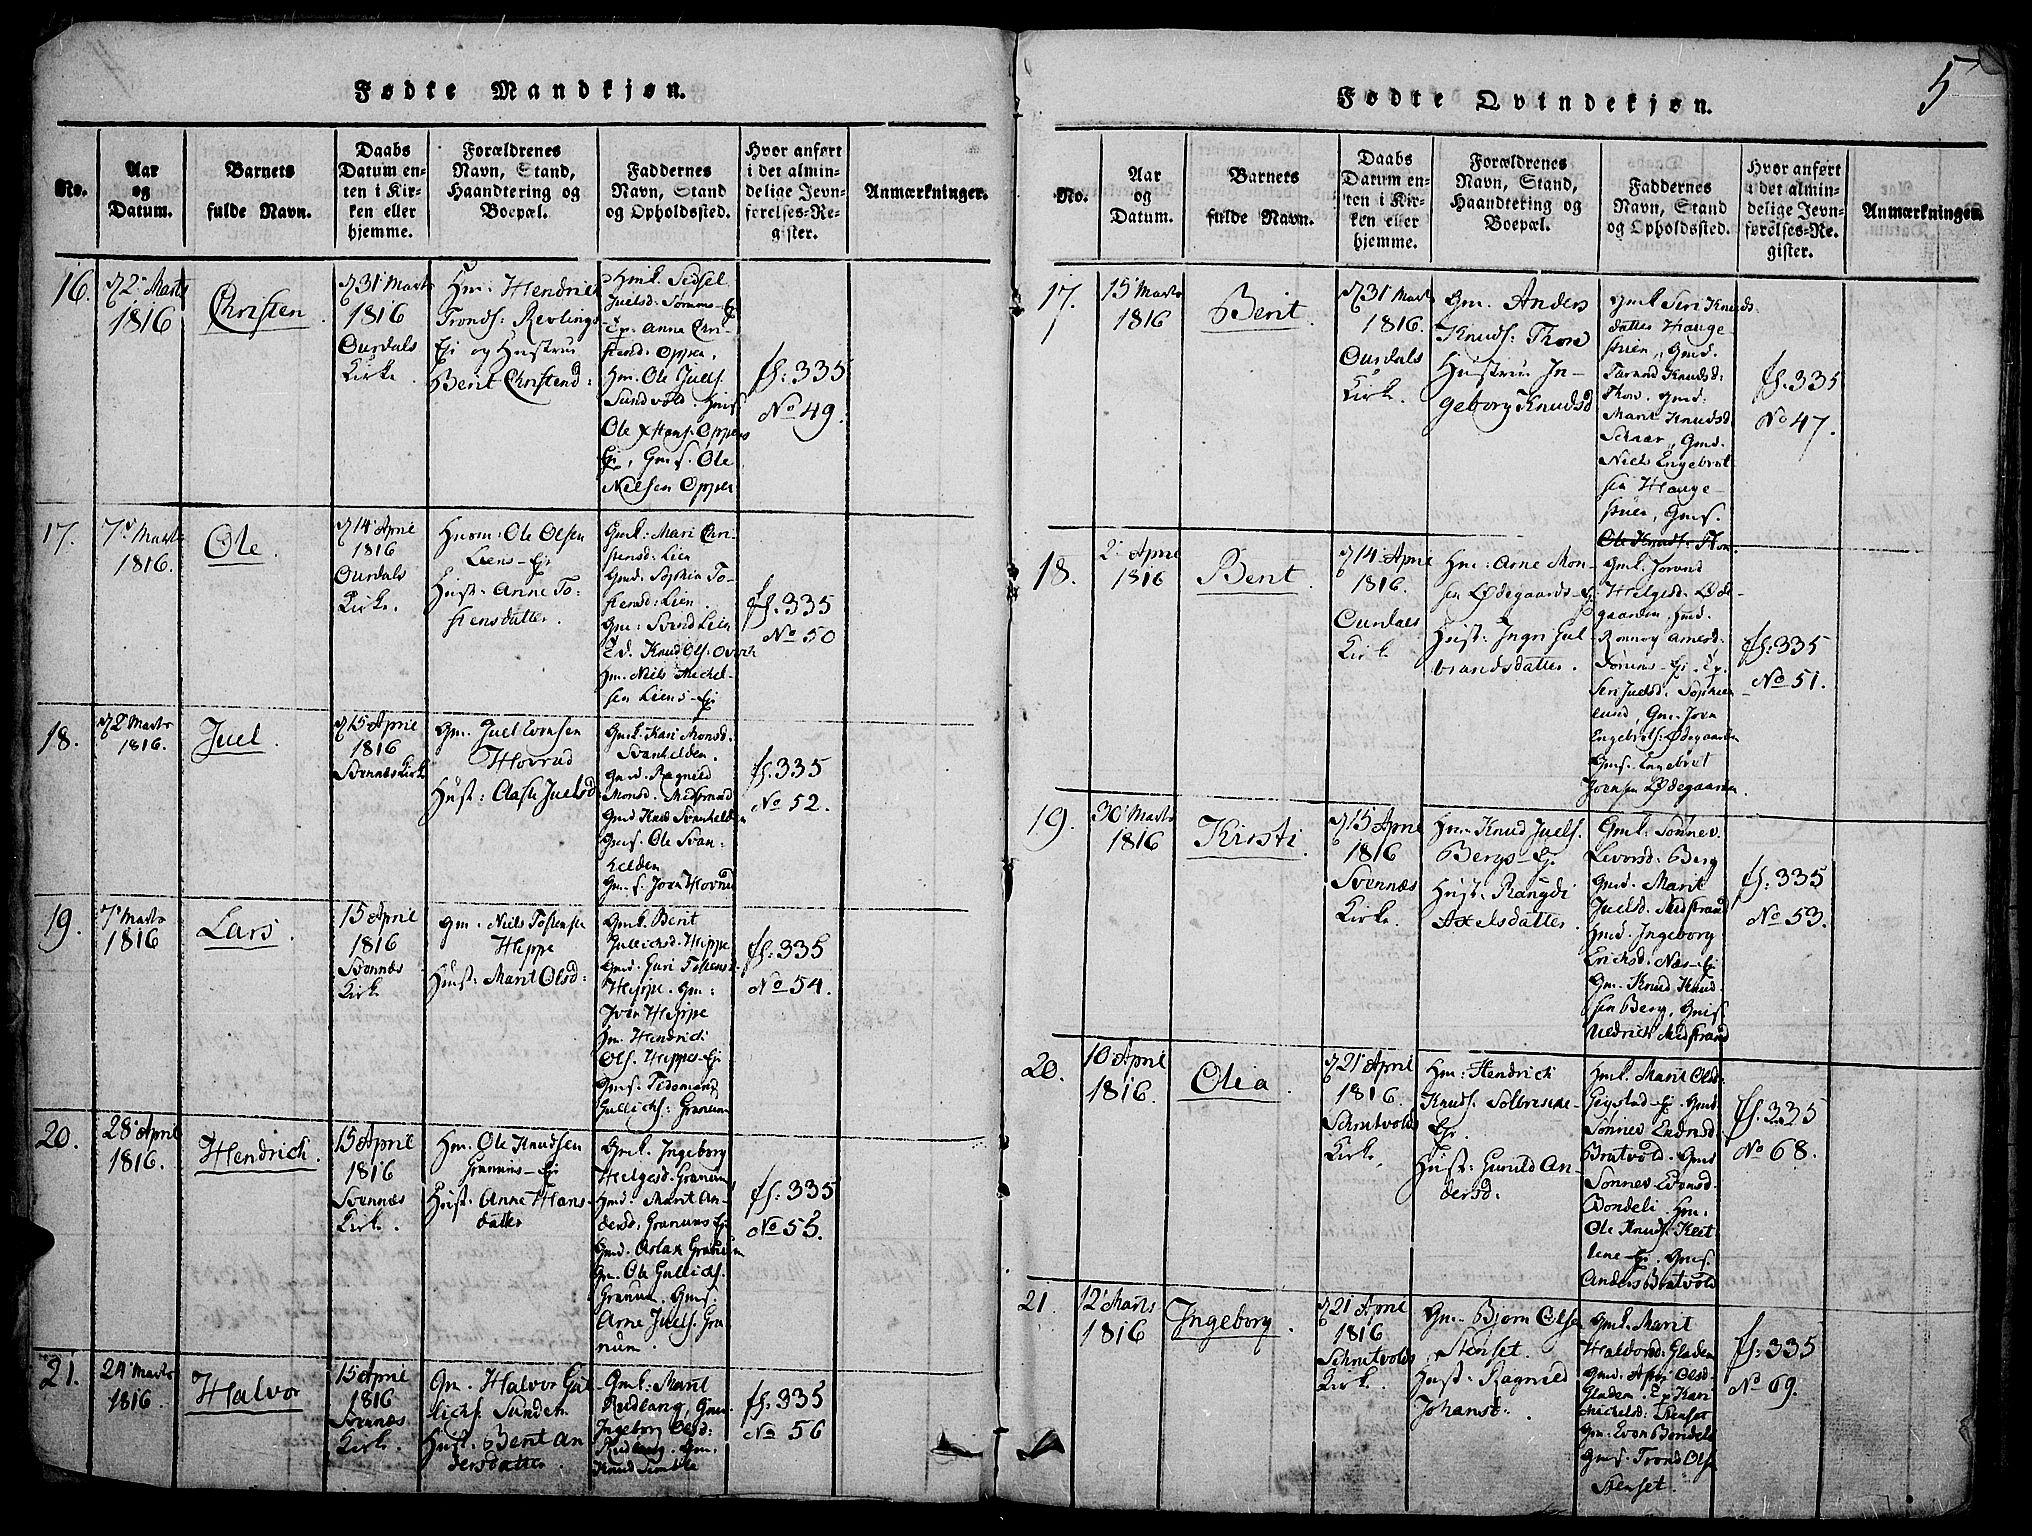 5
Fødte Mandkjøn.
No.
Aar
og
Datum.
Barnets
fulde Navn.
Daabs
Datum en-
ten i Kir-
ken eller
hjemme.
Forældrenes
Navn, Stand,
Haandtering og
Boepæl.
Faddernes
Navn, Stand
og Opholdssted.
Hvor anført
i det almin-
delige Jevn-
førelses-Re-
gister.
Anmærkninger.
16.
2 Marts
1816
Christen
31 Marts
1816
Ourdals
Kirke.
Hm: Hendrich
Tronds: Revlings-
Ej og Hustrue
Berit Christend:
Hml. Sidsel
Juelsd:
Anna Chri-
stensd: Opper.
Hm. Ole Juels.
Sundvold. Hmf.
Ole Hans. Oppers
Ej, Gmf. Ole
Nielsen Oppen
fl: 335
No 49.
17.
7 Marts
1816.
Ole
14 April
1816
Ourdals
Kirke.
Husm: Ole Olsen
Liens-Ej
Hust: Anne To-
stensdatter.
Gml: Mari Chri-
stensd: Lien
Gmd. Sophia To-
stensd: Lien
Gm: Svend Lien
Knud Ols:
Hm. Niels Michel-
sen Liens-Ej
fl: 335
No 50
18.
2 Marts
1816.
Juel.
15 April
1816
Svennes Kirke
Gm. Juel Evensen
Hovrud
Hust: Aase Juelsd:
Gml. Kari Monsd:
Svanhelden.
Gmd. Ragnild
Monsd: Midstrand
Gmd Knud Svanhelden
Gmf. Ole Svan-
helden
Gm. f. Jorn Hovrud
fl: 335
No 52.
19.
7 Marts
1816
Lars.
15 April
1816
Svennæs
Kirke
Gm. Niels Tostensen
Hippe
Hust: Marit Olsd:
Gml. Berit
Gullichsd. Hippe
Gmd. Guri Tostensd.
Hippe. Gm:
Iver Hippe
Hm. Hendrich
Ols. Hippes-Ej
Gmf. Tidemand
Gullichs: Granum
fl: 335
No 54.
20.
28 April
1816.
Hendrich.
15 April
1816
Svennæs
Kirke.
Hm. Ole Knudsen
Granums-Ej
Hust: Anne Hans-
datter
Gml. Ingeborg
Helgesd. Granum
Hmd. Marit An-
dersd, Granums Ej
Gmd. Aslak Granum
Gm. Ole Gullichs.
Granum. Gmf.
Arne Juels. Gra-
num.
fl: 335
No 55.
21.
24 Marts
1816.
Halvor
15 April
1816
Svennæs
Kirke.
Gm. Halvor Gul-
lichs. Sunden
Hust: Berit An-
dersdatter.
Gml: Marit
Rudlang, Gmd.
Ingeborg Olsd:
Rudlang. Gm.
Knud
fl: 335
No 56
Fødte Qvindekjøn.
No.
Aar
og
Datum.
Barnets
fulde Navn.
Daabs
Datum en-
ten i Kir-
ken eller
hjemme.
Forældrenes
Navn, Stand,
Haandtering og
Boepæl.
Faddernes
Navn, Stand
og Opholdssted.
Hvor anført
i det almin-
delige Jevn-
førelses-Re-
gister.
Anmærkninger.
17.
15 Marts
1816
Berit
31 Marts
1816.
Ourdals
Kirke.
Gm. Anders
Knuds: Thon
Hustrue In-
geborg Knudsd
Gml Siri Knuds-
datter Hauge-
stuen, Gmd.
Knudsd:
Thon. Gmd.
Marit Knudsd
Schaar, Gmd.
Niels Engebret-
sen Hauge-
stuen, Gmf.
Ole Knuds: Thon.
fl. 335
No 47.
18.
2 April
1816
Berit
14 April
1816.
Ourdals
Kirke
Hm: Arne Mon-
sen Ødegaards-Ej
Hust: Ingri Gul-
brandsdatter.
Gml. Jorand
Helgesd. Øde-
gaarden, Hmd.
Ronnoy Arnesd.
Siri Juelsd.
Gm. Jorn
Engebrets: Ødegaarden
Gmf. Engebret
Jornsen Ødegaarden.
fl: 335
No 51.
19.
30 Marts
1816
Kirsti.
15 April
1816
Svennæs
Kirke.
Hm. Knud Juels.
Bergs-Ej.
Hust: Rangdi
Axelsdatter.
Gml. Sønnev
Levorsd. Berg
Gmd. Marit
Juelsd. Midstrand
Hmd. Ingeborg
Erichsd: Næs-Ej
Gm. Knud Knud-
sen Berg, Gmf.
Uldrich Midstrand
fl: 335
No 53.
20.
10 April
1816.
Olea
21 April
1816.
Schrutvolds
Kirke,
Hm: Hendrich
Knuds.
Ej.
Hust: Gunild An-
dersd:
Hml. Marit Olsd:
Gigstad-Ej. Gmd
Sønnev Endresd:
Bratvold. Gmd
Sønnev Evensd.
Bondeli. Hm.
Ole Knuds.
Ej. Gmf.
Anders Bratvold
fl: 335
No 68.
21.
12 Marts
1816
Ingeborg.
21 April
1816
Schrutvolds
Kirke.
Gm. Bjørn Olsen
Stenset.
Hust: Ragnild
Johansd:.
Gml. Marit
Halvorsd: Gladen
Gmd. Olsd:
Gladen. Kari
Michelsd: Stenset
Gm: Even Bondeli
Gmf. Trond Olsen
Stenset.
fl: 335
No 69.